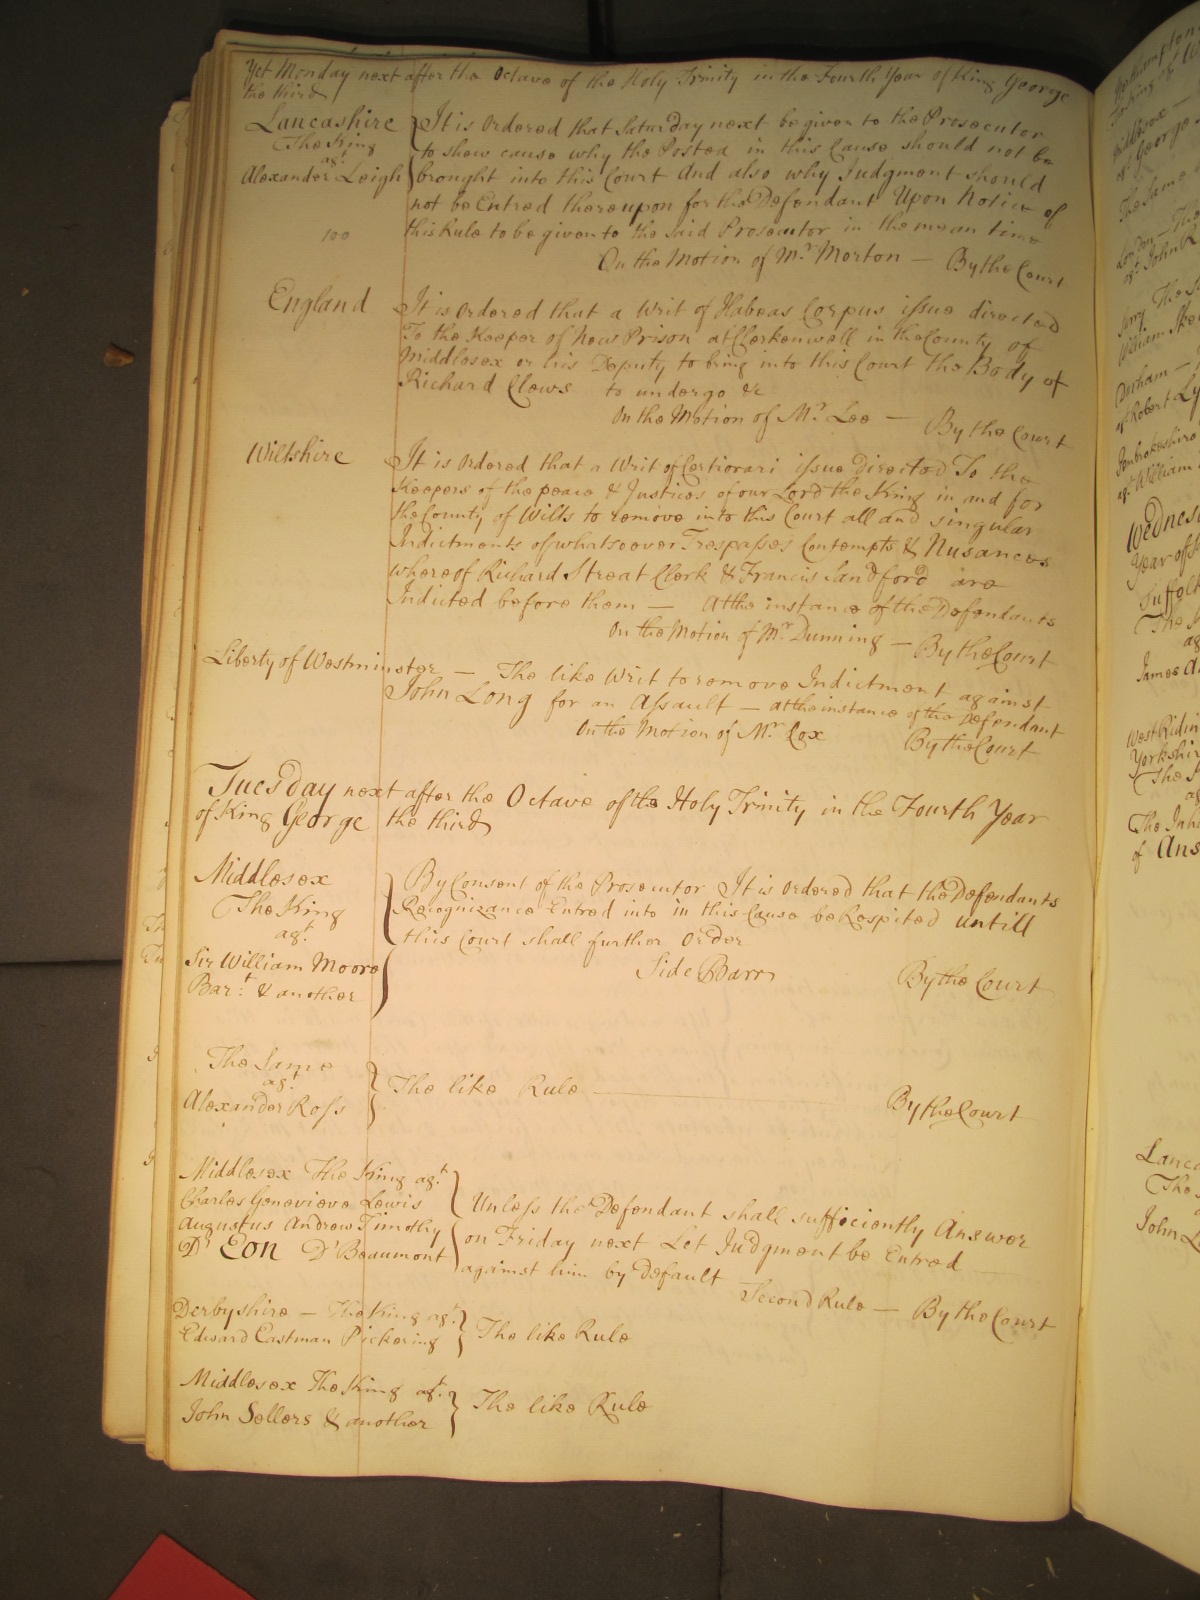 Yet Monday next after the Octave of the Holy Trinity in the Fourth Year of King George
the third
Lancashire
The King
agt
Alexander Leigh
100
It is Ordered that Saturday next be given to the Prosecutor
to shew cause why the Postea in this Cause should not be
brought into this Court And also why Judgment should
not be Entred thereupon for the Defendant Upon Notice of
this Rule to be given to the said Prosecutor in the mean time
On the Motion of Mr. Morton — By the Court
England
It is Ordered that a Writ of Habeas Corpus issue directed
To the Keeper of New Prison at Clerkenwell in the County of
Middlesex or his Deputy to bring into this Court the Body of
Richard Clews to undergo &c
On the Motion of Mr. Lee — By the Court
Wiltshire
It is Ordered that a Writ of Certiorari issue directed To the
Keepers of the peace & Justices of our Lord the King in and for
the County of Wilts to remove into this Court all and singular
Indictments of whatsoever Trespasses Contempts & Nusances
whereof Richard Streat Clerk & Francis Sandford are
Indicted before them — At the instance of the Defendants
On the Motion of Mr. Dunning — By the Court
Liberty of Westminster — The like Writ to remove Indictment against
John Long for an Assault — at the instance of the Defendant
On the Motion of Mr. Cox By the Court
Tuesday next after the Octave of the Holy Trinity in the Fourth Year
of King George the third
Middlesex
The King
agt.
Sir William Moore
Bart. & another
By Consent of the Prosecutor It is Ordered that the Defendants
Recognizance Entred into in this Cause be Respited untill
this Court shall further Order
Side Barr By the Court
The Same
agt
Alexander Ross
The like Rule — By the Court
Middlesex The King agt.
Charles Genevieve Lewis
Augustus Andrew Timothy
D' Eon D'Beaumont
Unless the Defendant shall sufficiently Answer
on Friday next Let Judgment be Entred
against him by Default
Second Rule — By the Court
Derbyshire — The King agt.
Edward Eastman Pickering
The like Rule
Middlesex The King agt.
John Sellers & another
The like Rule
Middlesex —
agt. George
The Same
London — The
agt. John
Surry The
William
Durham —
agt. Robert
Pembrokeshire
agt. William
Wednes
Year of
Suffolk
The
ag
James
West Ridin
Yorkshir
The
ag
The Inh
of Ans
Lanca
The
John